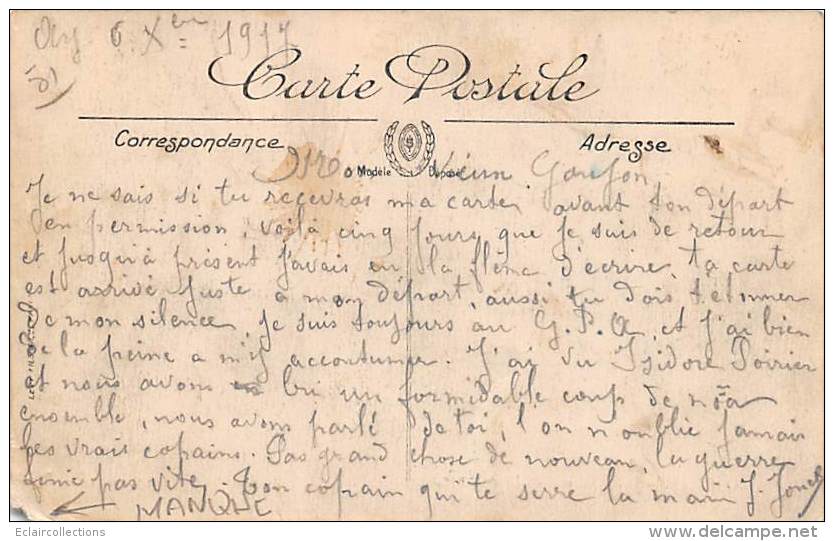 6 Xbre 1917
Carte Postale
Correspondance
Adresse
Modèle Déposé
Mro. Vieux Goujon
Je ne sais si tu recevras ma carte avant ton départ
en permission, voilà cinq jours que je suis de retour
et jusqu'à présent j'avais eu la flème d'écrire, ta carte
est arrivé juste à mon départ, aussi tu dois t'etonner
de mon silence, je suis toujours au G.P.A. et j'ai bien
de la peine a m'y accoutumer. J'ai vu Isidore Poirier
et nous avons bu un formidable coup de
ensemble, nous avons parlé de toi, l'on n'oublie jamais
les vrais copains. Pas grand chose de nouveau, la guerre
finie pas vite. Ton copain qui te serre la main J.
MANQUE
Eclaircollections